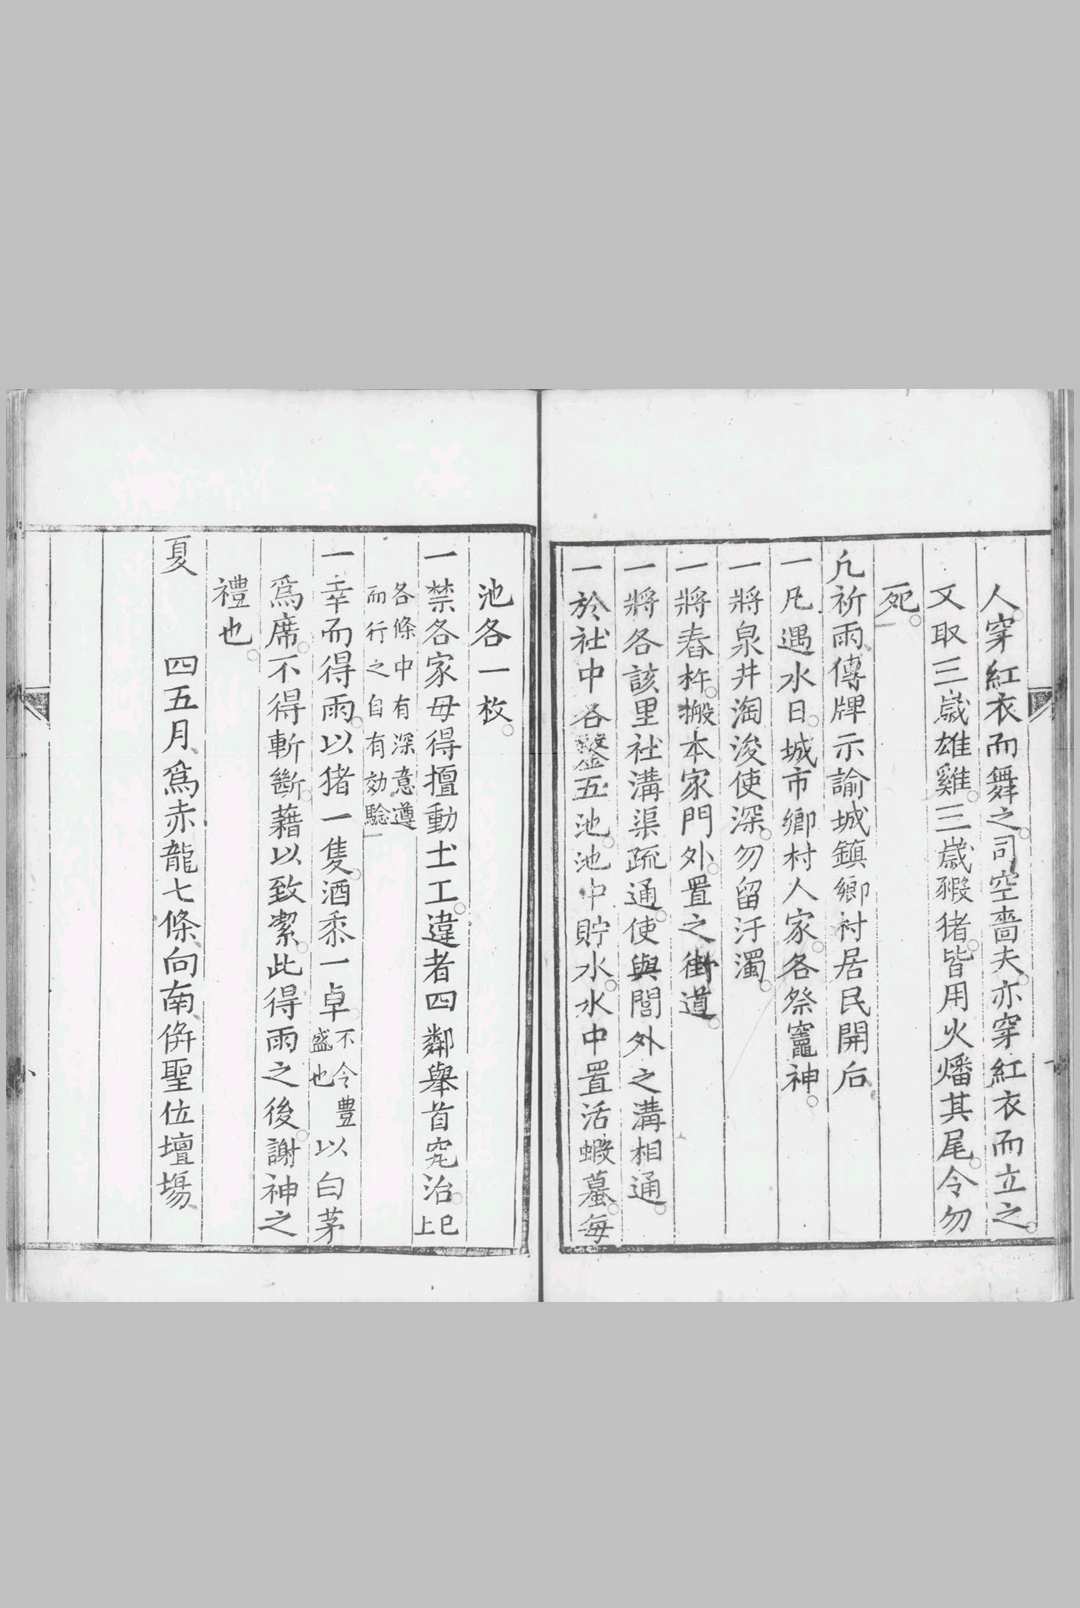 人穿紅衣而舞之。司空嗇夫。亦穿紅衣而立之。
又取三歲雄雞。三歲豭猪。皆用火燔其尾。令勿
死。
凢祈雨、傳牌示諭城鎮鄉村居民開后
一凡遇水日。城市鄉村人家。各祭竈神。
一將泉井淘浚使深。勿留汙濁。
一將舂杵。搬本家門外。置之街道。
一將各該里社溝渠疏通。使與閭外之溝相通。
一於社中各鑿五池。池中貯水。水中置活蝦蟇。每
池各一枚。
一禁各家毋得擅動土工。違者四鄰舉首究治。已上
各條中有深意遵
而行之自有効驗
一幸而得雨。以猪一隻。酒黍一卓。不令豊盛也以白茅
爲席。不得斬斷。藉以致潔。此得雨之後。謝神之
禮也。
夏　四五月、爲赤龍七條、向南、併聖位壇塲、